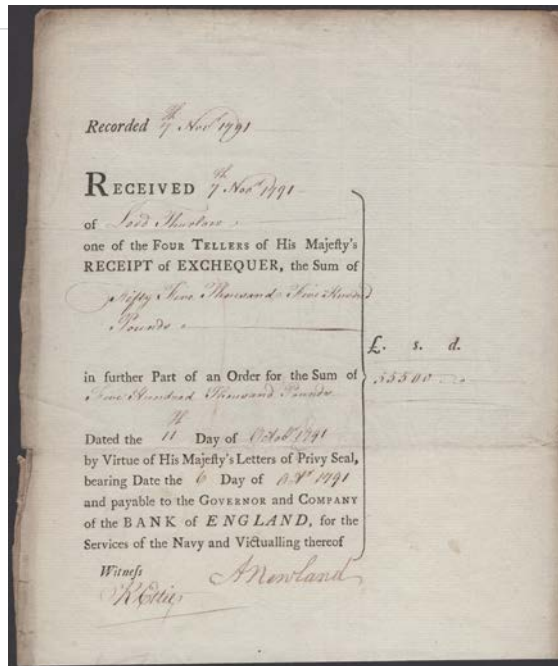 Recorded 7th Novr 1791
RECEIVED 7th Novr 1791
of Lord Thurlow
one of the FOUR TELLERS of His Majeſty's
RECEIPT of EXCHEQUER, the Sum of
Fifty Five Thousand Five Hundred
Pounds
£. s. d.
in further Part of an Order for the Sum of
55500
Five Hundred Thousand Pounds
Dated the 11th Day of Octobr 1791
by Virtue of His Majeſty's Letters of Privy Seal,
bearing Date the 6 Day of Octr 1791
and payable to the GOVERNOR and COMPANY
of the BANK of ENGLAND, for the
Services of the Navy and Victualling thereof
Witneſs
A Newland